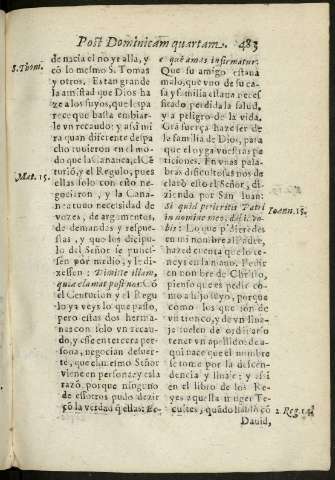 Post Dominicam quartam. 483
S. Thom.
de nacia el no yr alla, y
cõ lo mesmo S. Tomas
y otros. Es tan grande
la amistad que Dios ha
ze a los suyos, que les pa
rece que basta embiar-
le vn recaudo: y assi mi
ra quan diferente despa
cho tuuieron en el mo-
do que la Cananea, el Cẽ
turiõ, y el Regulo, pues
Mat. 15.
ellas solo con esto ne-
gociaron, y la Cana-
nea tuuo necesidad de
vozes, de argumentos,
de demandas y respue-
stas, y que los dicipu-
lo del Señor se pusies-
sen por medio, y le di-
xessen: Dimitte illam,
quia clamat post nos. Cõ
el Centurion y el Regu
lo ya veys lo que passo,
pero estas dos herma-
nas con solo vn recau-
do, y esse en tercera per-
sona, negocian de suer-
te, que el mismo Señor
viene en persona: y essa ra
zõ porque ninguno
de essotros pudo dezir
cõ la verdad q̃ ellas: Ec-
ce quẽ amas infirmatur.
Que su amigo estaua
malo, que vno de su ca-
sa y familia estaua necessi
ficado perdida la salud,
y a peligro de la vida.
Gra fuerça haze ser de
la familia de Dios, para
que el oyga vuestras pe
ticiones. En vnas pala-
bras dificultosas nos de
claro esto el Señor, di-
ziendo por San Iuan:
Si quid petieritis Patri
Ioann. 15.
in nomine meo, dabit vo-
bis: Lo que pidieredes
en mi nombre al Padre,
hazed cuenta que lo te-
neys en la mano. Pedir
en nombre de Christo,
pienso que es pedir co-
mo a lo suyo, porque
como los que son de
vn tienco, y de vn lina-
je suelen de ordinario
tener vn apellido: de a-
qui nace que el nombre
se tome por la descen-
dencia y linaje; y assi
en el libro de los Re-
yes aquella muger Te-
cuites, quãdo hablò cõ
2. Reg. 14.
Dauid,